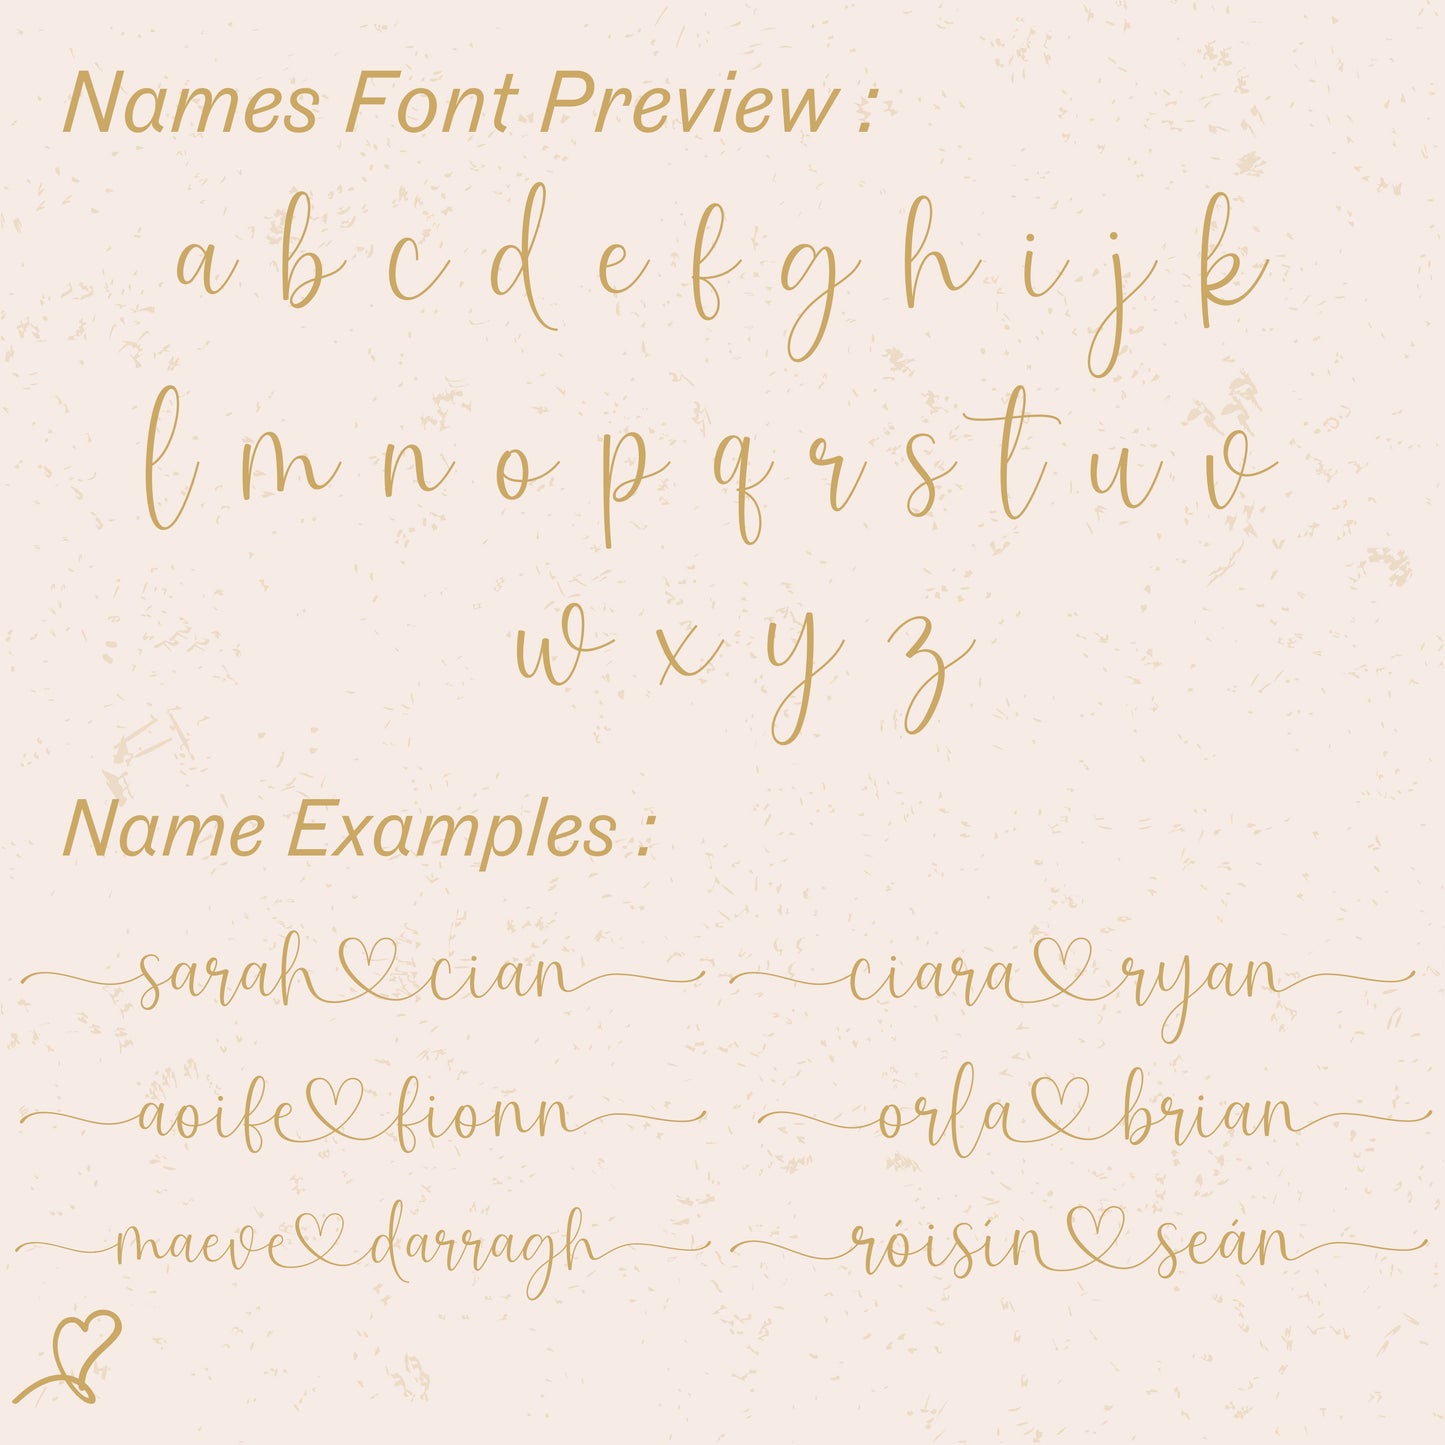 Names Font Preview :
a b c d e f g h i j k
l m n o p q r s t u v
w x y z
Name Examples :
sarah♡cian
ciara♡ryan
aoife♡fionn
orla♡brian
maeve♡darragh
róisín♡seán